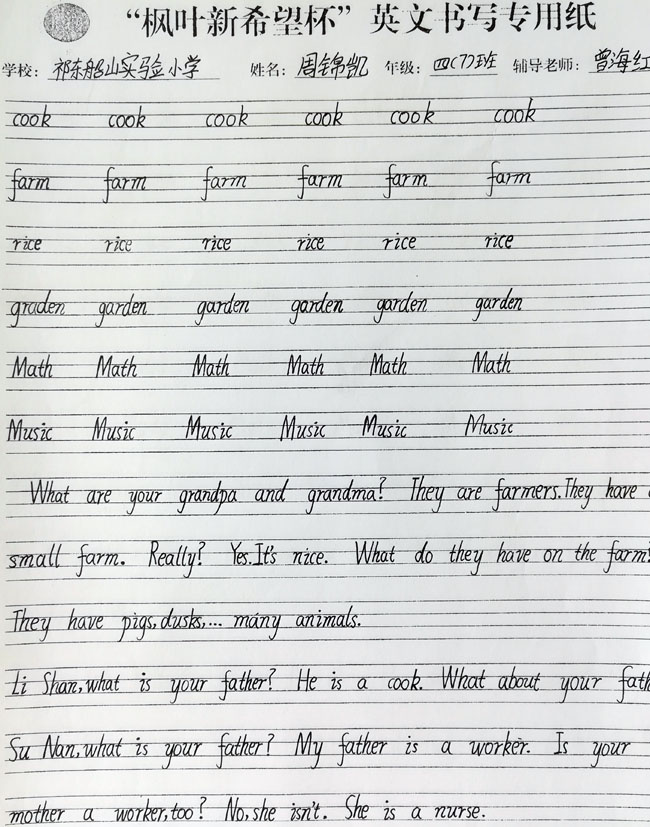 “枫叶新希望杯”英文书写专用纸
学校： 祁东船山实验小学 姓名： 周锦凯 年级： 四(7)班 辅导老师： 曾海红
cook cook cook cook cook cook
farm farm farm farm farm farm
rice rice rice rice rice rice
graden garden garden garden garden garden
Math Math Math Math Math Math
Music Music Music Music Music Music
What are your grandpa and grandma? They are farmers. They have
small farm. Really? Yes. It's nice. What do they have on the farm?
They have pigs, dusks, ... many animals.
Li Shan, what is your father? He is a cook. What about your fath
Su Nan, what is your father? My father is a worker. Is your
mother a worker, too? No, she isn't. She is a nurse.